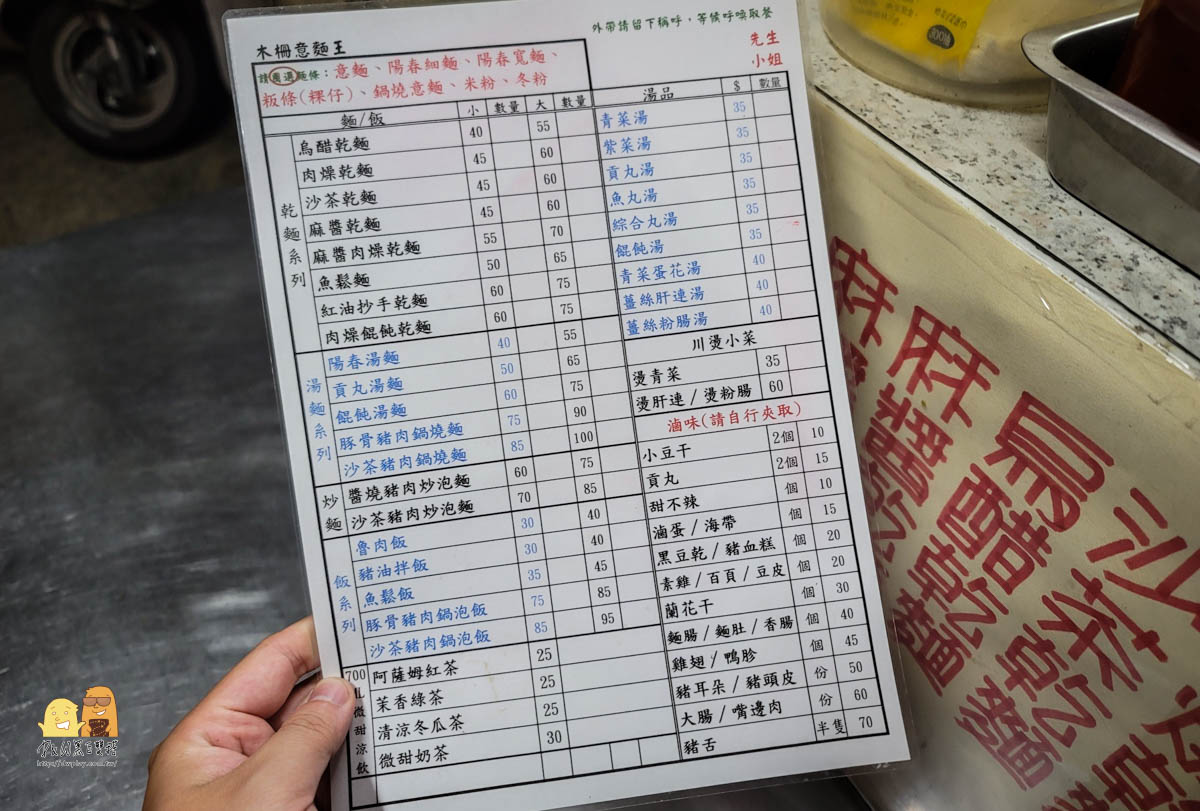 外帶請留下稱呼，等候呼喚取餐
木柵意麵王
先生
小姐
請圈選麵條：意麵、陽春細麵、陽春寬麵、
粄條(粿仔)、鍋燒意麵、米粉、冬粉
麵/飯 小 數量 大 數量
乾麵系列
烏醋乾麵 40 55
肉燥乾麵 45 60
沙茶乾麵 45 60
麻醬乾麵 45 60
麻醬肉燥乾麵 55 70
魚鬆麵 50 65
紅油抄手乾麵 60 75
肉燥餛飩乾麵 60 75
湯麵系列
陽春湯麵 40 55
貢丸湯麵 50 65
餛飩湯麵 60 75
豚骨豬肉鍋燒麵 75 90
沙茶豬肉鍋燒麵 85 100
炒麵
醬燒豬肉炒泡麵 60 75
沙茶豬肉炒泡麵 70 85
飯系列
魯肉飯 30 40
豬油拌飯 30 40
魚鬆飯 35 45
豚骨豬肉鍋泡飯 75 85
沙茶豬肉鍋泡飯 85 95
700ML微甜涼飲
阿薩姆紅茶 25
茉香綠茶 25
清涼冬瓜茶 25
微甜奶茶 30
湯品 $ 數量
青菜湯 35
紫菜湯 35
貢丸湯 35
魚丸湯 35
綜合丸湯 35
餛飩湯 35
青菜蛋花湯 40
薑絲肝連湯 40
薑絲粉腸湯 40
川燙小菜
燙青菜 35
燙肝連/燙粉腸 60
滷味(請自行夾取)
小豆干 2個 10
貢丸 2個 15
甜不辣 個 10
滷蛋/海帶 個 15
黑豆乾/豬血糕 個 20
素雞/百頁/豆皮 個 20
蘭花干 個 30
麵腸/麵肚/香腸 個 40
雞翅/鴨胗 個 45
豬耳朵/豬頭皮 份 50
大腸/嘴邊肉 份 60
豬舌 半隻 70
麻醬乾麵
烏醋乾麵
沙茶乾麵